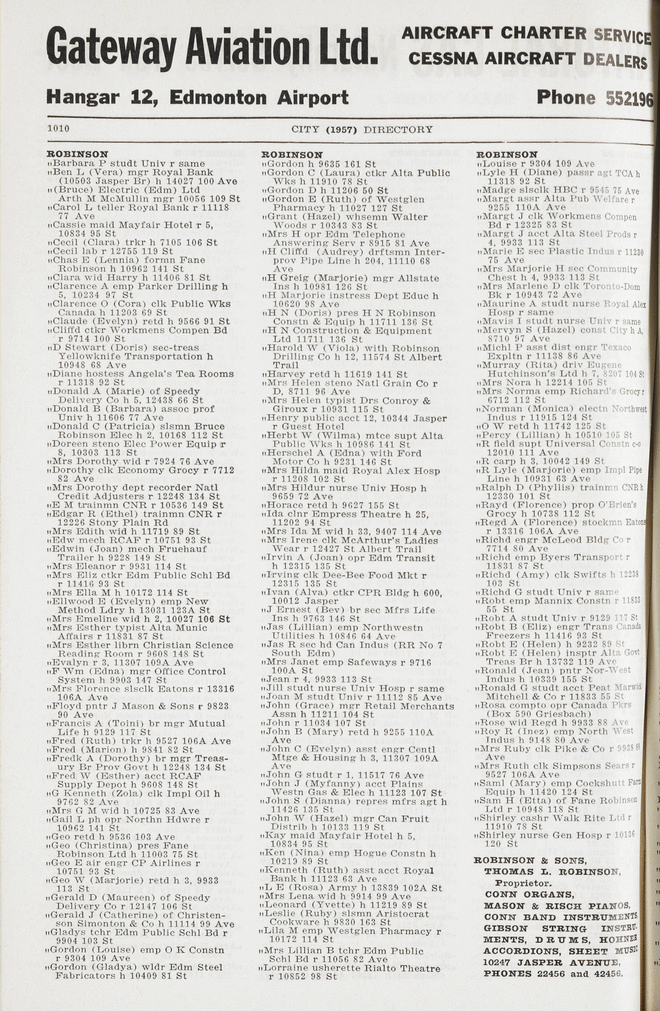 Gateway Aviation Ltd.
AIRCRAFT CHARTER SERVICE
CESSNA AIRCRAFT DEALERS
Hangar 12, Edmonton Airport
Phone 552196
1010
CITY (1957) DIRECTORY
ROBINSON
"Barbara P studt Univ r same
"Ben L (Vera) mgr Royal Bank
(10503 Jasper Br) h 14027 100 Ave
"(Bruce) Electric (Edm) Ltd
Arth M McMullin mgr 10056 109 St
"Carol L teller Royal Bank r 11118
77 Ave
"Cassie maid Mayfair Hotel r 5,
10834 95 St
"Cecil (Clara) trkr h 7105 106 St
"Cecil lab r 12755 119 St
"Chas E (Lennia) formn Fane
Robinson h 10962 141 St
"Clara wid Harry h 11406 81 St
"Clarence A emp Parker Drilling h
5, 10234 97 St
"Clarence O (Cora) clk Public Wks
Canada h 11203 69 St
"Claude (Evelyn) retd h 9566 91 St
"Cliffd ctkr Workmens Compen Bd
r 9714 100 St
"D Stewart (Doris) sec-treas
Yellowknife Transportation h
10948 68 Ave
"Diane hostess Angela's Tea Rooms
r 11318 92 St
"Donald A (Marie) of Speedy
Delivery Co h 5, 12438 66 St
"Donald B (Barbara) assoc prof
Univ h 11606 77 Ave
"Donald C (Patricia) slsmn Bruce
Robinson Elec h 2, 10168 112 St
"Doreen steno Elec Power Equip r
8, 10303 113 St
"Mrs Dorothy wid r 7924 76 Ave
"Dorothy clk Economy Grocy r 7712
82 Ave
"Mrs Dorothy dept recorder Natl
Credit Adjusters r 12248 134 St
"E M trainmn CNR r 10536 149 St
"Edgar R (Ethel) trainmn CNR r
12226 Stony Plain Rd
"Mrs Edith wid h 11719 89 St
"Edw mech RCAF r 10751 93 St
"Edwin (Joan) mech Fruehauf
Trailer h 9228 149 St
"Mrs Eleanor r 9931 114 St
"Mrs Eliz ctkr Edm Public Schl Bd
r 11416 93 St
"Mrs Ella M h 10172 114 St
"Ellwood E (Evelyn) emp New
Method Ldry h 13031 123A St
"Mrs Emeline wid h 2, 10027 106 St
"Mrs Esther typist Alta Munic
Affairs r 11831 87 St
"Mrs Esther librn Christian Science
Reading Room r 9608 148 St
"Evalyn r 3, 11307 109A Ave
"F Wm (Edna) mgr Office Control
System h 9903 147 St
"Mrs Florence slsclk Eatons r 13316
106A Ave
"Floyd pntr J Mason & Sons r 9823
90 Ave
"Francis A (Toini) br mgr Mutual
Life h 9129 117 St
"Fred (Ruth) trkr h 9527 106A Ave
"Fred (Marion) h 9841 82 St
"Fredk A (Dorothy) br mgr Treas-
ury Br Prov Govt h 12248 134 St
"Fred W (Esther) acct RCAF
Supply Depot h 9608 148 St
"G Kenneth (Zola) clk Impl Oil h
9762 82 Ave
"Mrs G M wid h 10725 83 Ave
"Gail L ph opr Northn Hdwre r
10962 141 St
"Geo retd h 9536 103 Ave
"Geo (Christina) pres Fane
Robinson Ltd h 11003 75 St
"Geo E air engr CP Airlines r
10751 93 St
"Geo W (Marjorie) retd h 3, 9933
113 St
"Gerald D (Maureen) of Speedy
Delivery Co r 12147 106 St
"Gerald J (Catherine) of Christen-
son Simonton & Co h 11114 99 Ave
"Gladys tchr Edm Public Schl Bd r
9904 103 St
"Gordon (Louise) emp O K Constn
r 9304 109 Ave
"Gordon (Gladys) wldr Edm Steel
Fabricators h 10409 81 St
ROBINSON
"Gordon h 9635 161 St
"Gordon C (Laura) ctkr Alta Public
Wks h 11910 78 St
"Gordon D h 11206 50 St
"Gordon E (Ruth) of Westglen
Pharmacy h 11027 127 St
"Grant (Hazel) whsemn Walter
Woods r 10343 83 St
"Mrs H opr Edm Telephone
Answering Serv r 8915 81 Ave
"H Cliffd (Audrey) drftsmn Inter-
prov Pipe Line h 204, 11110 68
Ave
"H Greig (Marjorie) mgr Allstate
Ins h 10981 126 St
"H Marjorie instress Dept Educ h
10620 98 Ave
"H N (Doris) pres H N Robinson
Constn & Equip h 11711 136 St
"H N Construction & Equipment
Ltd 11711 136 St
"Harold W (Viola) with Robinson
Drilling Co h 12, 11574 St Albert
Trail
"Harvey retd h 11619 141 St
"Mrs Helen steno Natl Grain Co r
D, 8711 96 Ave
"Mrs Helen typist Drs Conroy &
Giroux r 10931 115 St
"Henry public acct 12, 10344 Jasper
r Guest Hotel
"Herbt W (Wilma) mtce supt Alta
Public Wks h 10986 141 St
"Herschel A (Edna) with Ford
Motor Co h 9231 146 St
"Mrs Hilda maid Royal Alex Hosp
r 11208 102 St
"Mrs Hildur nurse Univ Hosp h
9659 72 Ave
"Horace retd h 9627 155 St
"Ida clnr Empress Theatre h 25,
11202 94 St
"Mrs Ida M wid h 33, 9407 114 Ave
"Mrs Irene clk McArthur's Ladies
Wear r 12427 St Albert Trail
"Irvin A (Joan) opr Edm Transit
h 12315 135 St
"Irving clk Dee-Bee Food Mkt r
12315 135 St
"Ivan (Alva) ctkr CPR Bldg h 600,
10012 Jasper
"J Ernest (Bev) br sec Mfrs Life
Ins h 9763 146 St
"Jas (Lillian) emp Northwestn
Utilities h 10846 64 Ave
"Jas R sec hd Can Indus (RR No 7
South Edm)
"Mrs Janet emp Safeways r 9716
100A St
"Jean r 4, 9933 113 St
"Jill studt nurse Univ Hosp r same
"Joan M studt Univ r 11112 85 Ave
"John (Grace) mgr Retail Merchants
Assn h 11211 104 St
"John r 11034 107 St
"John B (Mary) retd h 9255 110A
Ave
"John C (Evelyn) asst engr Centl
Mtge & Housing h 3, 11307 109A
Ave
"John G studt r 1, 11517 76 Ave
"John J (Myfanny) acct Plains
Westn Gas & Elec h 11123 107 St
"John S (Dianna) repres mfrs agt h
11426 135 St
"John W (Hazel) mgr Can Fruit
Distrib h 10133 119 St
"Kay maid Mayfair Hotel h 5,
10834 95 St
"Ken (Nina) emp Hogue Constn h
10219 89 St
"Kenneth (Ruth) asst acct Royal
Bank h 11123 63 Ave
"L E (Rosa) Army h 13839 102A St
"Mrs Lena wid h 9914 99 Ave
"Leonard (Yvette) h 11219 89 St
"Leslie (Ruby) slsmn Aristocrat
Cookware h 9830 163 St
"Lila M emp Westglen Pharmacy r
10172 114 St
"Mrs Lillian B tchr Edm Public
Schl Bd r 11056 82 Ave
"Lorraine usherette Rialto Theatre
r 10852 98 St
ROBINSON
"Louise r 9304 109 Ave
"Lyle H (Diane) passr agt TCA h
11318 92 St
"Madge slsclk HBC r 9545 75 Ave
"Margt assr Alta Pub Welfare r
9255 110A Ave
"Margt J clk Workmens Compen
Bd r 12325 83 St
"Margt J acct Alta Steel Prods r
4, 9933 113 St
"Marie E sec Plastic Indus r 11230
75 Ave
"Mrs Marjorie H sec Community
Chest h 4, 9933 113 St
"Mrs Marlene D clk Toronto-Dom
Bk r 10943 72 Ave
"Maurine A studt nurse Royal Alex
Hosp r same
"Mavis I studt nurse Univ r same
"Mervyn S (Hazel) const City h A,
8710 97 Ave
"Michl P asst dist engr Texaco
Expltn r 11138 86 Ave
"Murray (Rita) driv Eugene
Hutchinson's Ltd h 7, 8207 104 St
"Mrs Nora h 12214 105 St
"Mrs Norma emp Richard's Grocy r
6712 112 St
"Norman (Monica) electn Northwest
Indus r 11915 124 St
"O W retd h 11742 125 St
"Percy (Lillian) h 10510 105 St
"R field supt Universal Constn
12010 111 Ave
"R carp h 3, 10042 149 St
"R Lyle (Marjorie) emp Impl Pipe
Line h 10931 63 Ave
"Ralph D (Phyllis) trainmn CNR h
12330 101 St
"Rayd (Florence) prop O'Brien's
Grocy h 10738 112 St
"Regd A (Florence) stockmn Eatons
r 13316 106A Ave
"Richd engr McLeod Bldg Co r
7714 80 Ave
"Richd emp Byers Transport r
11831 87 St
"Richd (Amy) clk Swifts h 12238
103 St
"Richd G studt Univ r same
"Robt emp Mannix Constn r 11833
55 St
"Robt A studt Univ r 9129 117 St
"Robt B (Eliz) engr Trans Canada
Freezers h 11416 93 St
"Robt E (Helen) h 9232 89 St
"Robt E (Helen) insptr Alta Govt
Treas Br h 13732 119 Ave
"Ronald (Jean) pntr Nor-West
Indus h 10339 155 St
"Ronald G studt acct Peat Marwid
Mitchell & Co r 11833 55 St
"Rosa compto opr Canada Pkrs
(Box 590 Griesbach)
"Rose wid Regd h 9933 88 Ave
"Roy R (Inez) emp North West
Indus h 9148 80 Ave
"Mrs Ruby clk Pike & Co r 9938
Ave
"Mrs Ruth clk Simpsons Sears r
9527 106A Ave
"Saml (Mary) emp Cockshutt Farm
Equip h 11420 124 St
"Sam H (Etta) of Fane Robinson
Ltd r 10948 118 St
"Shirley cashr Walk Rite Ltd r
11910 78 St
"Shirley nurse Gen Hosp r 10136
120 St
ROBINSON & SONS,
THOMAS L. ROBINSON,
Proprietor.
CONN ORGANS,
MASON & RISCH PIANOS,
CONN BAND INSTRUMENTS
GIBSON STRING INSTRU-
MENTS, DRUMS, HOHNER
ACCORDIONS, SHEET MUSIC
10247 JASPER AVENUE,
PHONES 22456 and 42456.